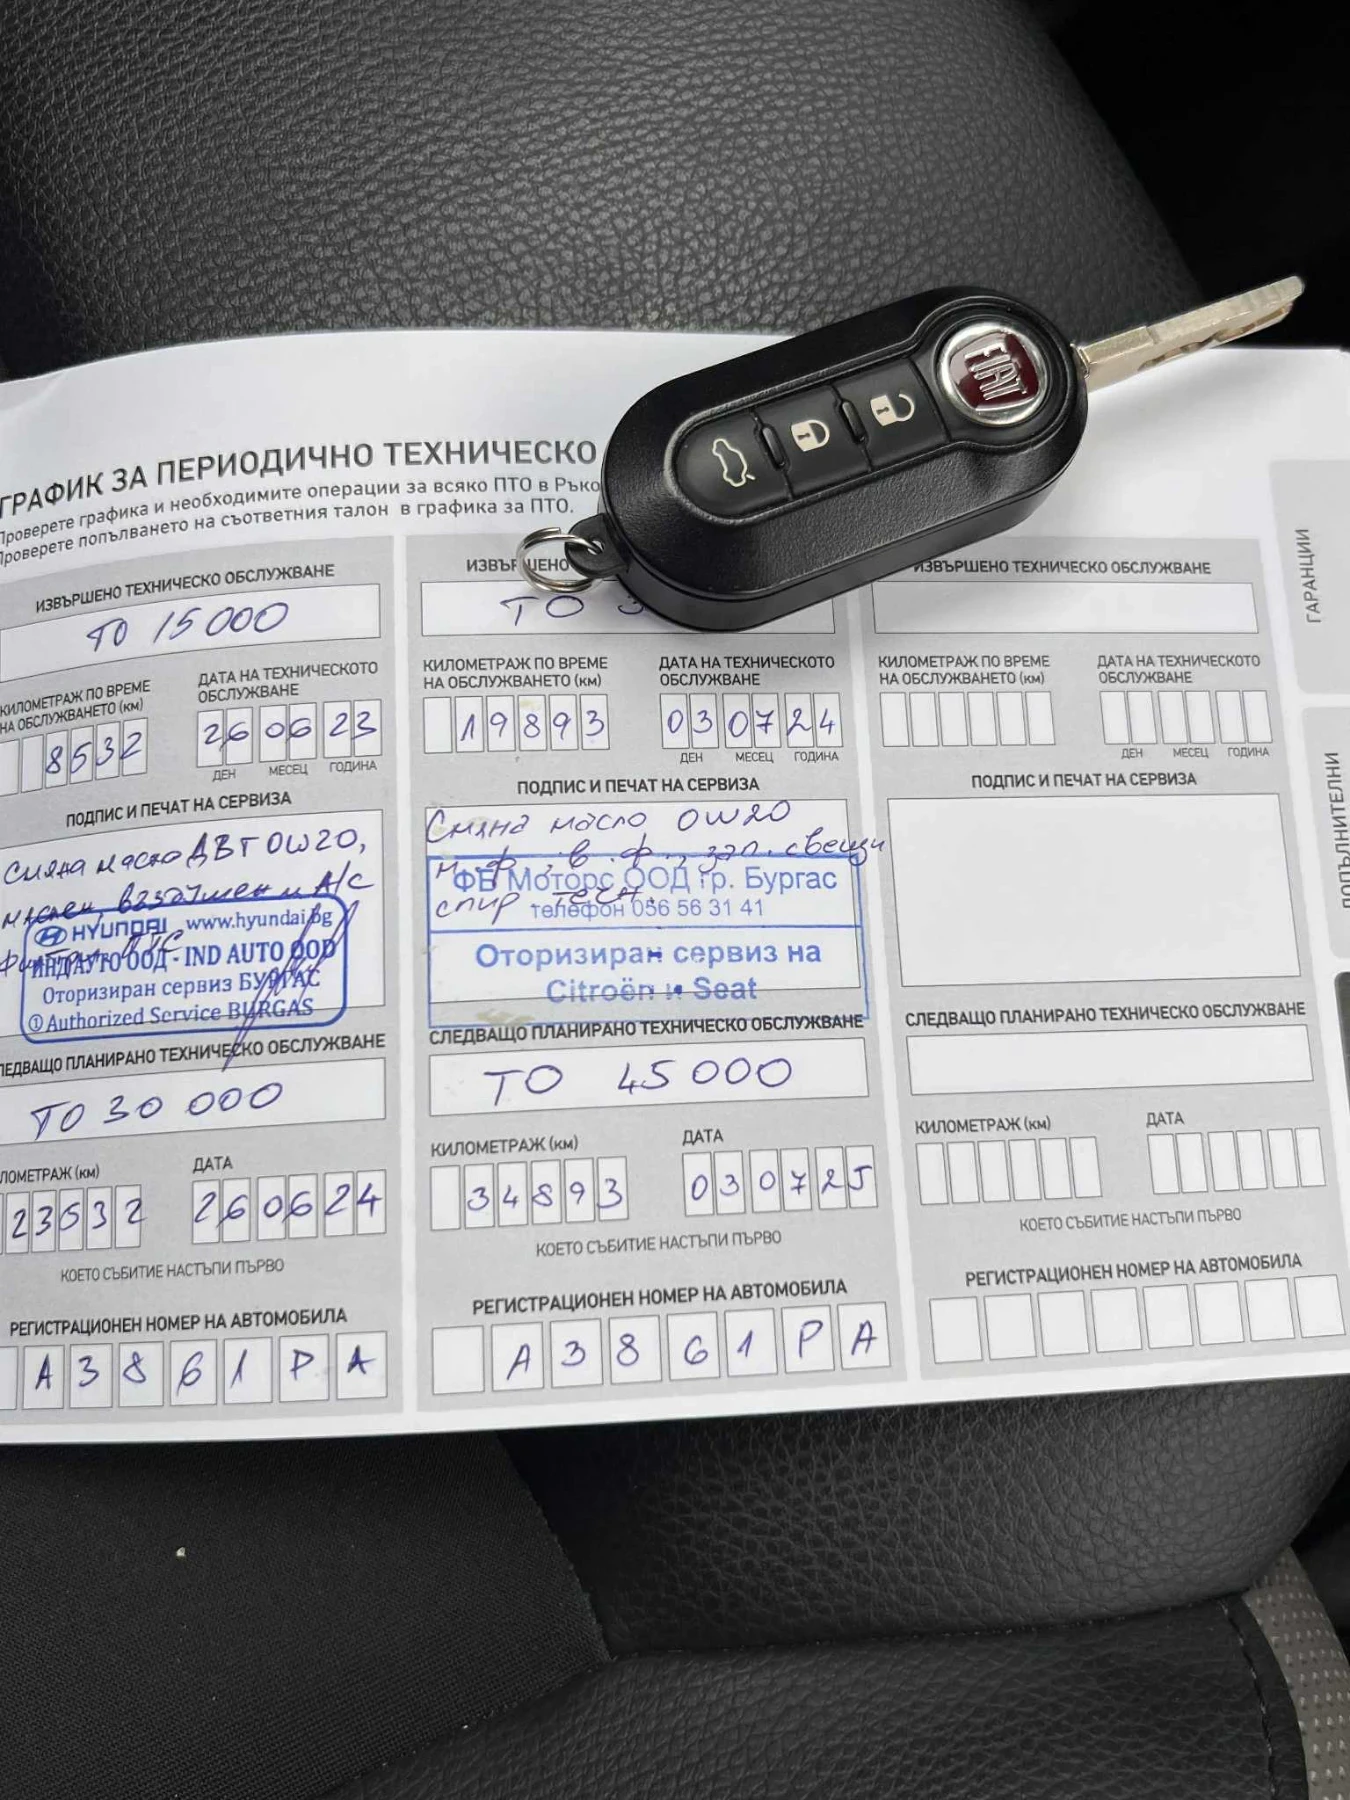 ГРАФИК ЗА ПЕРИОДИЧНО ТЕХНИЧЕСКО
Проверете графика и необходимите операции за всяко ПТО в Ръко
Проверете попълването на съответния талон в графика за ПТО.
FIAT
ИЗВЪРШЕНО ТЕХНИЧЕСКО ОБСЛУЖВАНЕ
ТО 15 000
КИЛОМЕТРАЖ ПО ВРЕМЕ
НА ОБСЛУЖВАНЕТО (км)
8532
ДАТА НА ТЕХНИЧЕСКОТО
ОБСЛУЖВАНЕ
26 06 23
ДЕН МЕСЕЦ ГОДИНА
ПОДПИС И ПЕЧАТ НА СЕРВИЗА
Смяна масло ДВГ 0W20,
маслен, въздушен и A/C
HYUNDAI www.hyundai.bg
ИНД АУТО ООД - IND AUTO OOD
Оторизиран сервиз БУРГАС
Authorized Service BURGAS
СЛЕДВАЩО ПЛАНИРАНО ТЕХНИЧЕСКО ОБСЛУЖВАНЕ
ТО 30 000
КИЛОМЕТРАЖ (км)
23532
ДАТА
26 06 24
КОЕТО СЪБИТИЕ НАСТЪПИ ПЪРВО
РЕГИСТРАЦИОНЕН НОМЕР НА АВТОМОБИЛА
А 3 8 6 1 Р А
ИЗВЪРШЕНО
ТО 3
КИЛОМЕТРАЖ ПО ВРЕМЕ
НА ОБСЛУЖВАНЕТО (км)
19893
ДАТА НА ТЕХНИЧЕСКОТО
ОБСЛУЖВАНЕ
03 07 24
ДЕН МЕСЕЦ ГОДИНА
ПОДПИС И ПЕЧАТ НА СЕРВИЗА
Смяна масло 0W20
м.ф., в.ф., зап. свещи
спир. течн.
ФБ Моторс ООД гр. Бургас
телефон 056 56 31 41
Оторизиран сервиз на
Citroën и Seat
СЛЕДВАЩО ПЛАНИРАНО ТЕХНИЧЕСКО ОБСЛУЖВАНЕ
ТО 45 000
КИЛОМЕТРАЖ (км)
34893
ДАТА
03 07 25
КОЕТО СЪБИТИЕ НАСТЪПИ ПЪРВО
РЕГИСТРАЦИОНЕН НОМЕР НА АВТОМОБИЛА
А 3 8 6 1 Р А
ИЗВЪРШЕНО ТЕХНИЧЕСКО ОБСЛУЖВАНЕ
КИЛОМЕТРАЖ ПО ВРЕМЕ
НА ОБСЛУЖВАНЕТО (км)
ДАТА НА ТЕХНИЧЕСКОТО
ОБСЛУЖВАНЕ
ДЕН МЕСЕЦ ГОДИНА
ПОДПИС И ПЕЧАТ НА СЕРВИЗА
СЛЕДВАЩО ПЛАНИРАНО ТЕХНИЧЕСКО ОБСЛУЖВАНЕ
КИЛОМЕТРАЖ (км)
ДАТА
КОЕТО СЪБИТИЕ НАСТЪПИ ПЪРВО
РЕГИСТРАЦИОНЕН НОМЕР НА АВТОМОБИЛА
ГАРАНЦИИ
ДОПЪЛНИТЕЛНИ